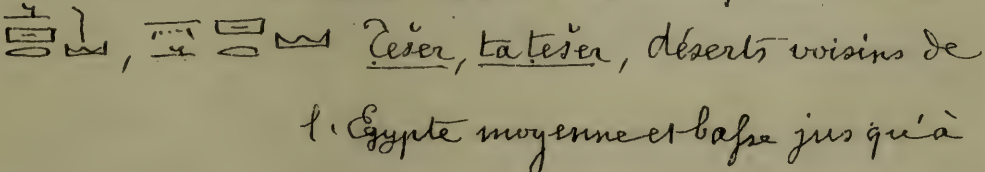 Ṭešer, ta ṭešer, déserts voisins de
l'Egypte moyenne et basse jusqu'à